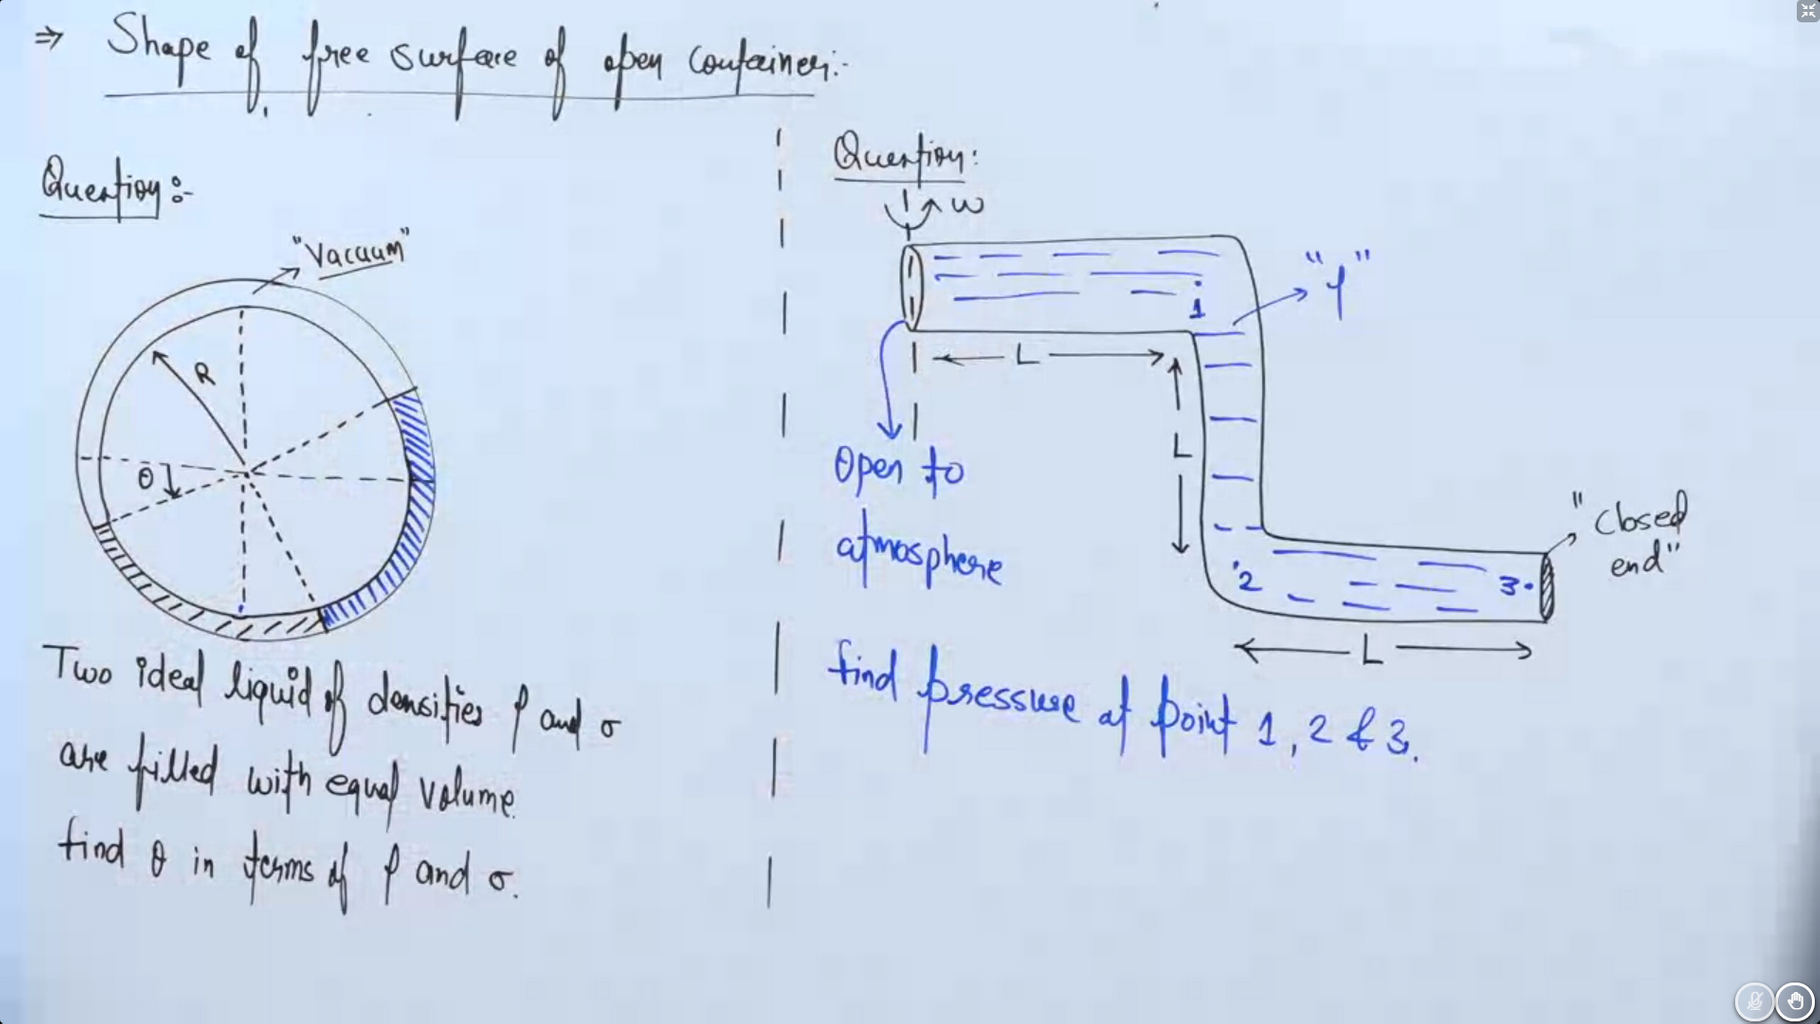 ⇒ Shape of free surface of open container:-
Question:-
"Vacuum"
R
θ
Two ideal liquid of densities ρ and σ
are filled with equal volume.
find θ in terms of ρ and σ.
Question:
ω
"ρ"
1
L
L
Open to
atmosphere
"closed
end"
2
3
L
find pressure at point 1, 2 & 3.